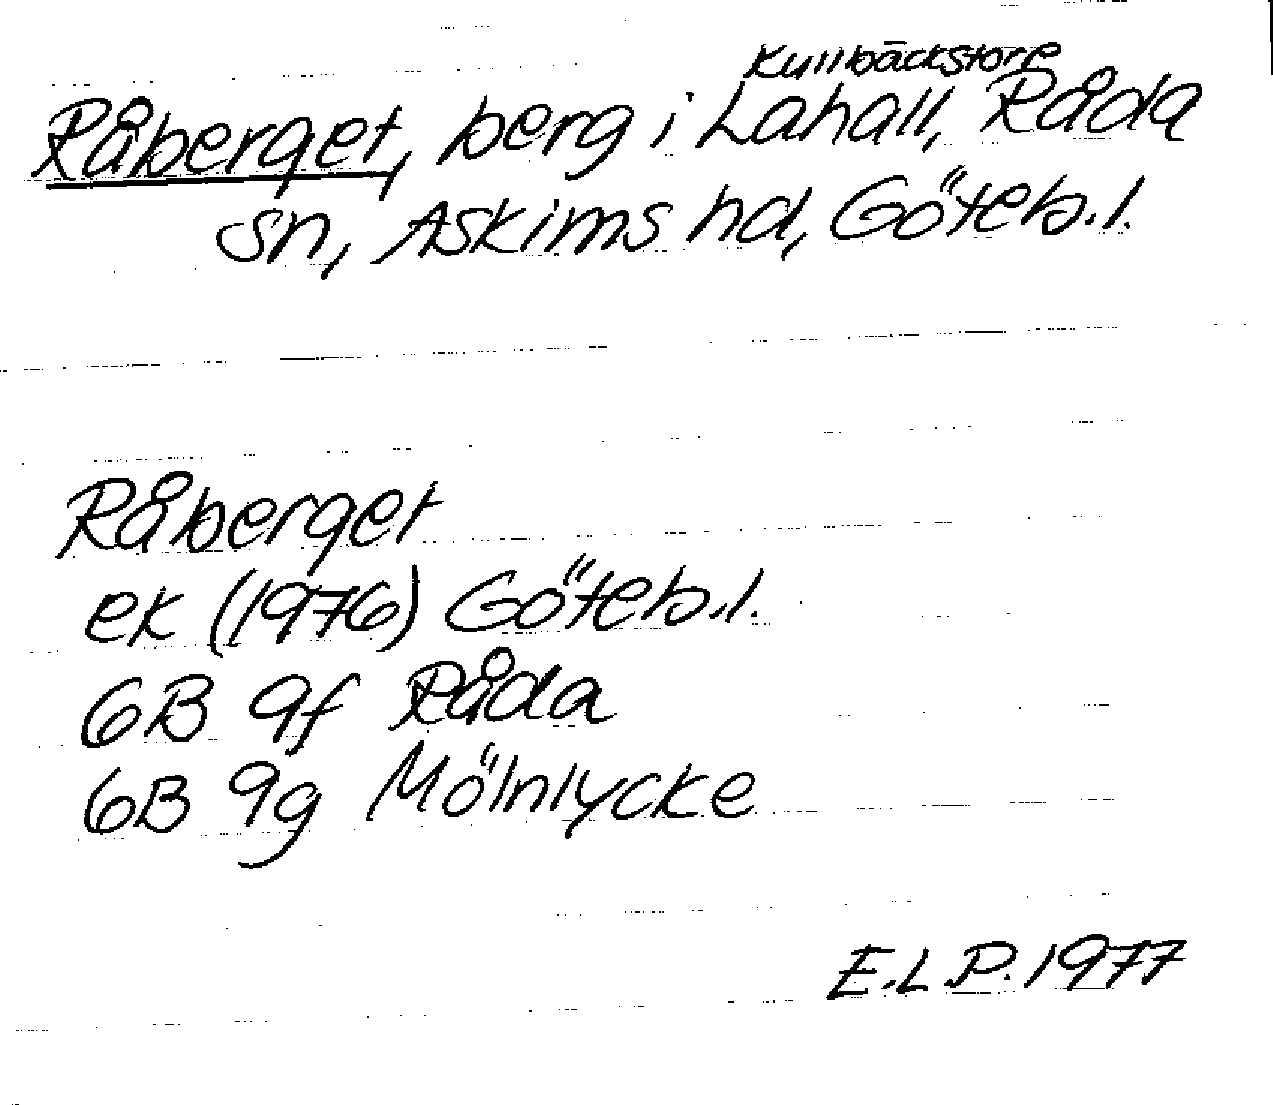 Kullbäckstorp
Råberget, berg i Lahall, Råda
sn, Askims hd, Göteb.l.
Råberget
ek (1976) Göteb.l.
6B 9f Råda
6B 9g Mölnlycke
E.L.P. 1977